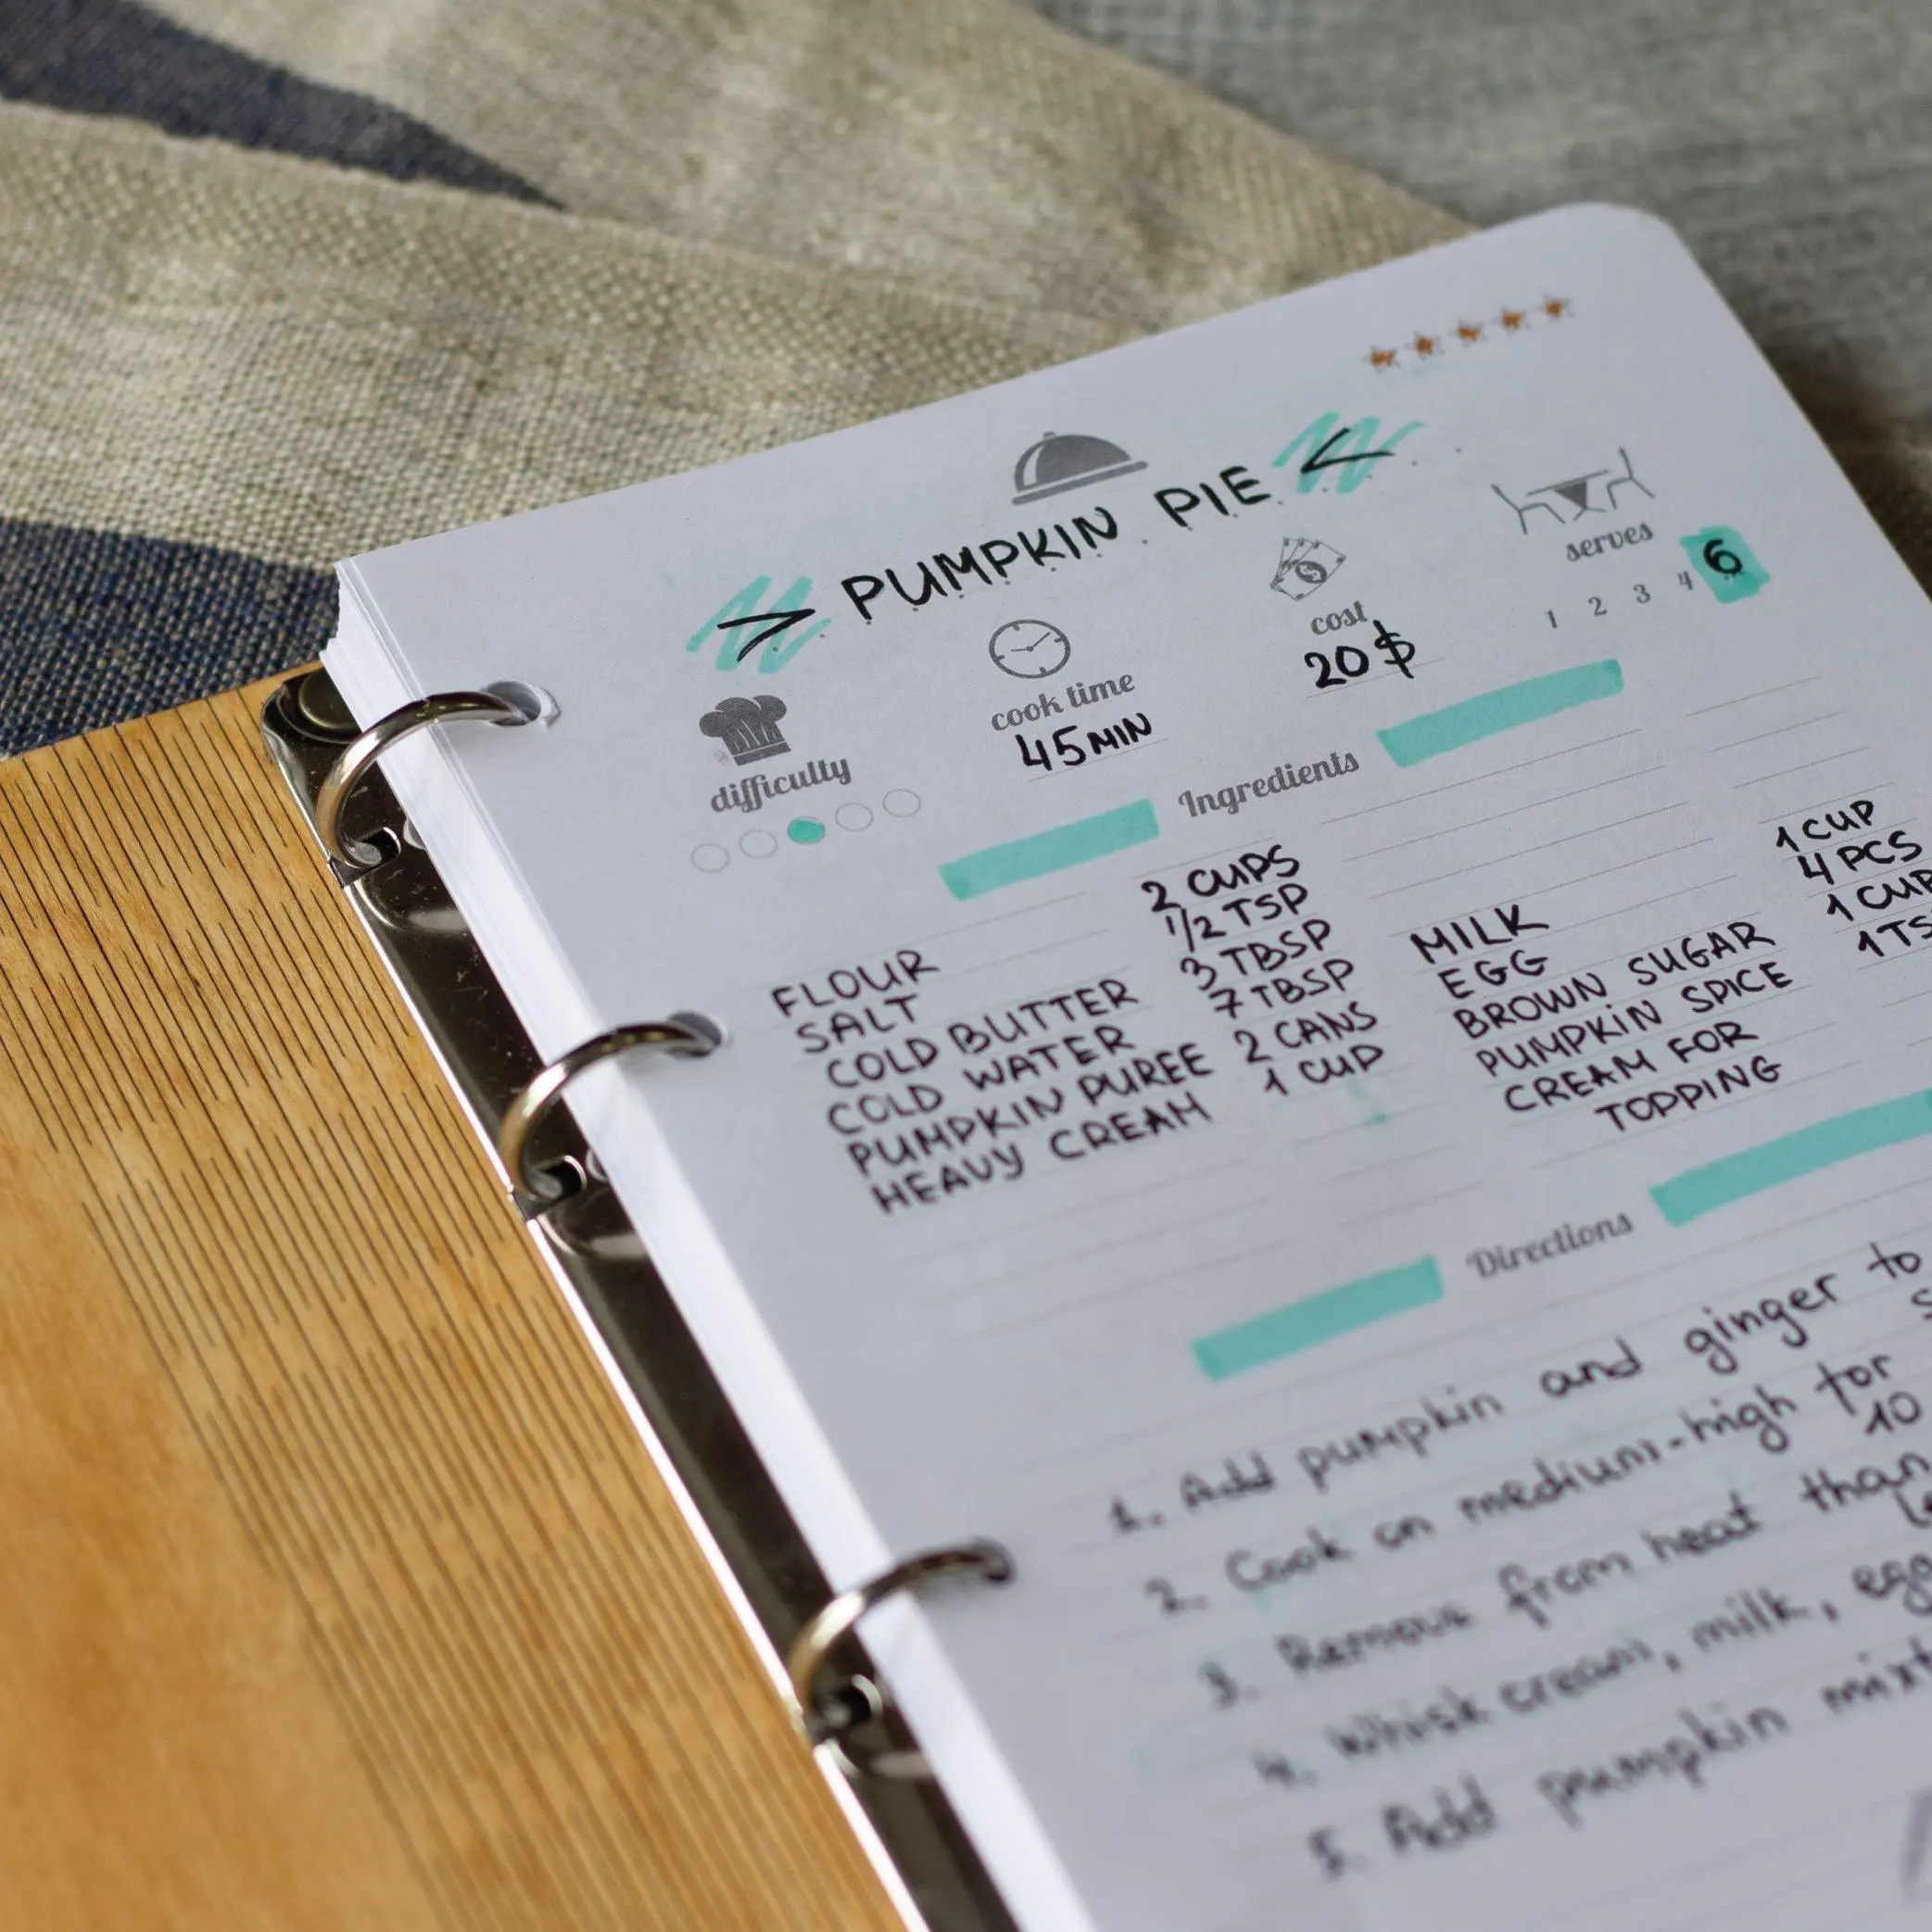 PUMPKIN PIE
difficulty
cook time
45 MIN
cost
20 $
serves
1 2 3 4 6
Ingredients
FLOUR 2 CUPS
SALT 1/2 TSP
COLD BUTTER 3 TBSP
COLD WATER 7 TBSP
PUMPKIN PUREE 2 CANS
HEAVY CREAM 1 CUP
MILK 1 CUP
EGG 4 PCS
BROWN SUGAR 1 CUP
PUMPKIN SPICE 1 TS
CREAM FOR
TOPPING
Directions
1. Add pumpkin and ginger to
2. Cook on medium-high for
10
3. Remove from heat than
4. Whisk cream, milk, egg
5. Add pumpkin mixt